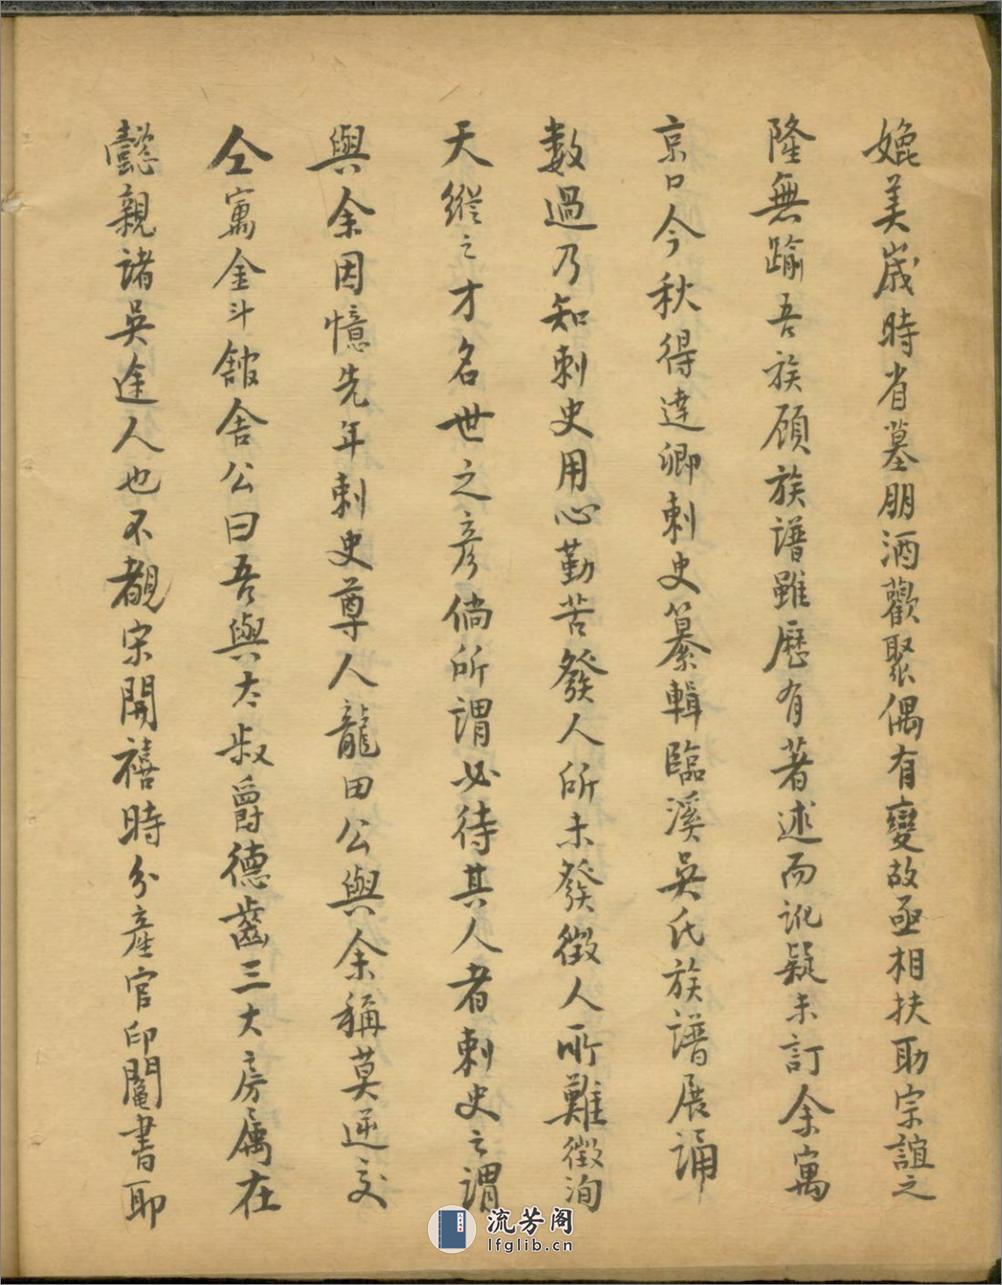 媲美歲時省墓朋酒歡聚偶有變故亟相扶助宗誼之
隆無踰吾族顧族譜雖歷有著述而訛疑未訂余寓
京口今秋得達卿刺史纂輯臨溪吳氏族譜展誦
數過乃知刺史用心勤苦發人所未發徵人所難徵洵
天縱之才名世之彥倘所謂必待其人者刺史之謂
與余因憶先年刺史尊人龍田公與余稱莫逆交
仝寓金斗舘舍公曰吾與太叔爵德齒三大房属在
懿親諸吳途人也不觀宋開禧時分產官印鬮書耶
流芳阁
lfglib.cn